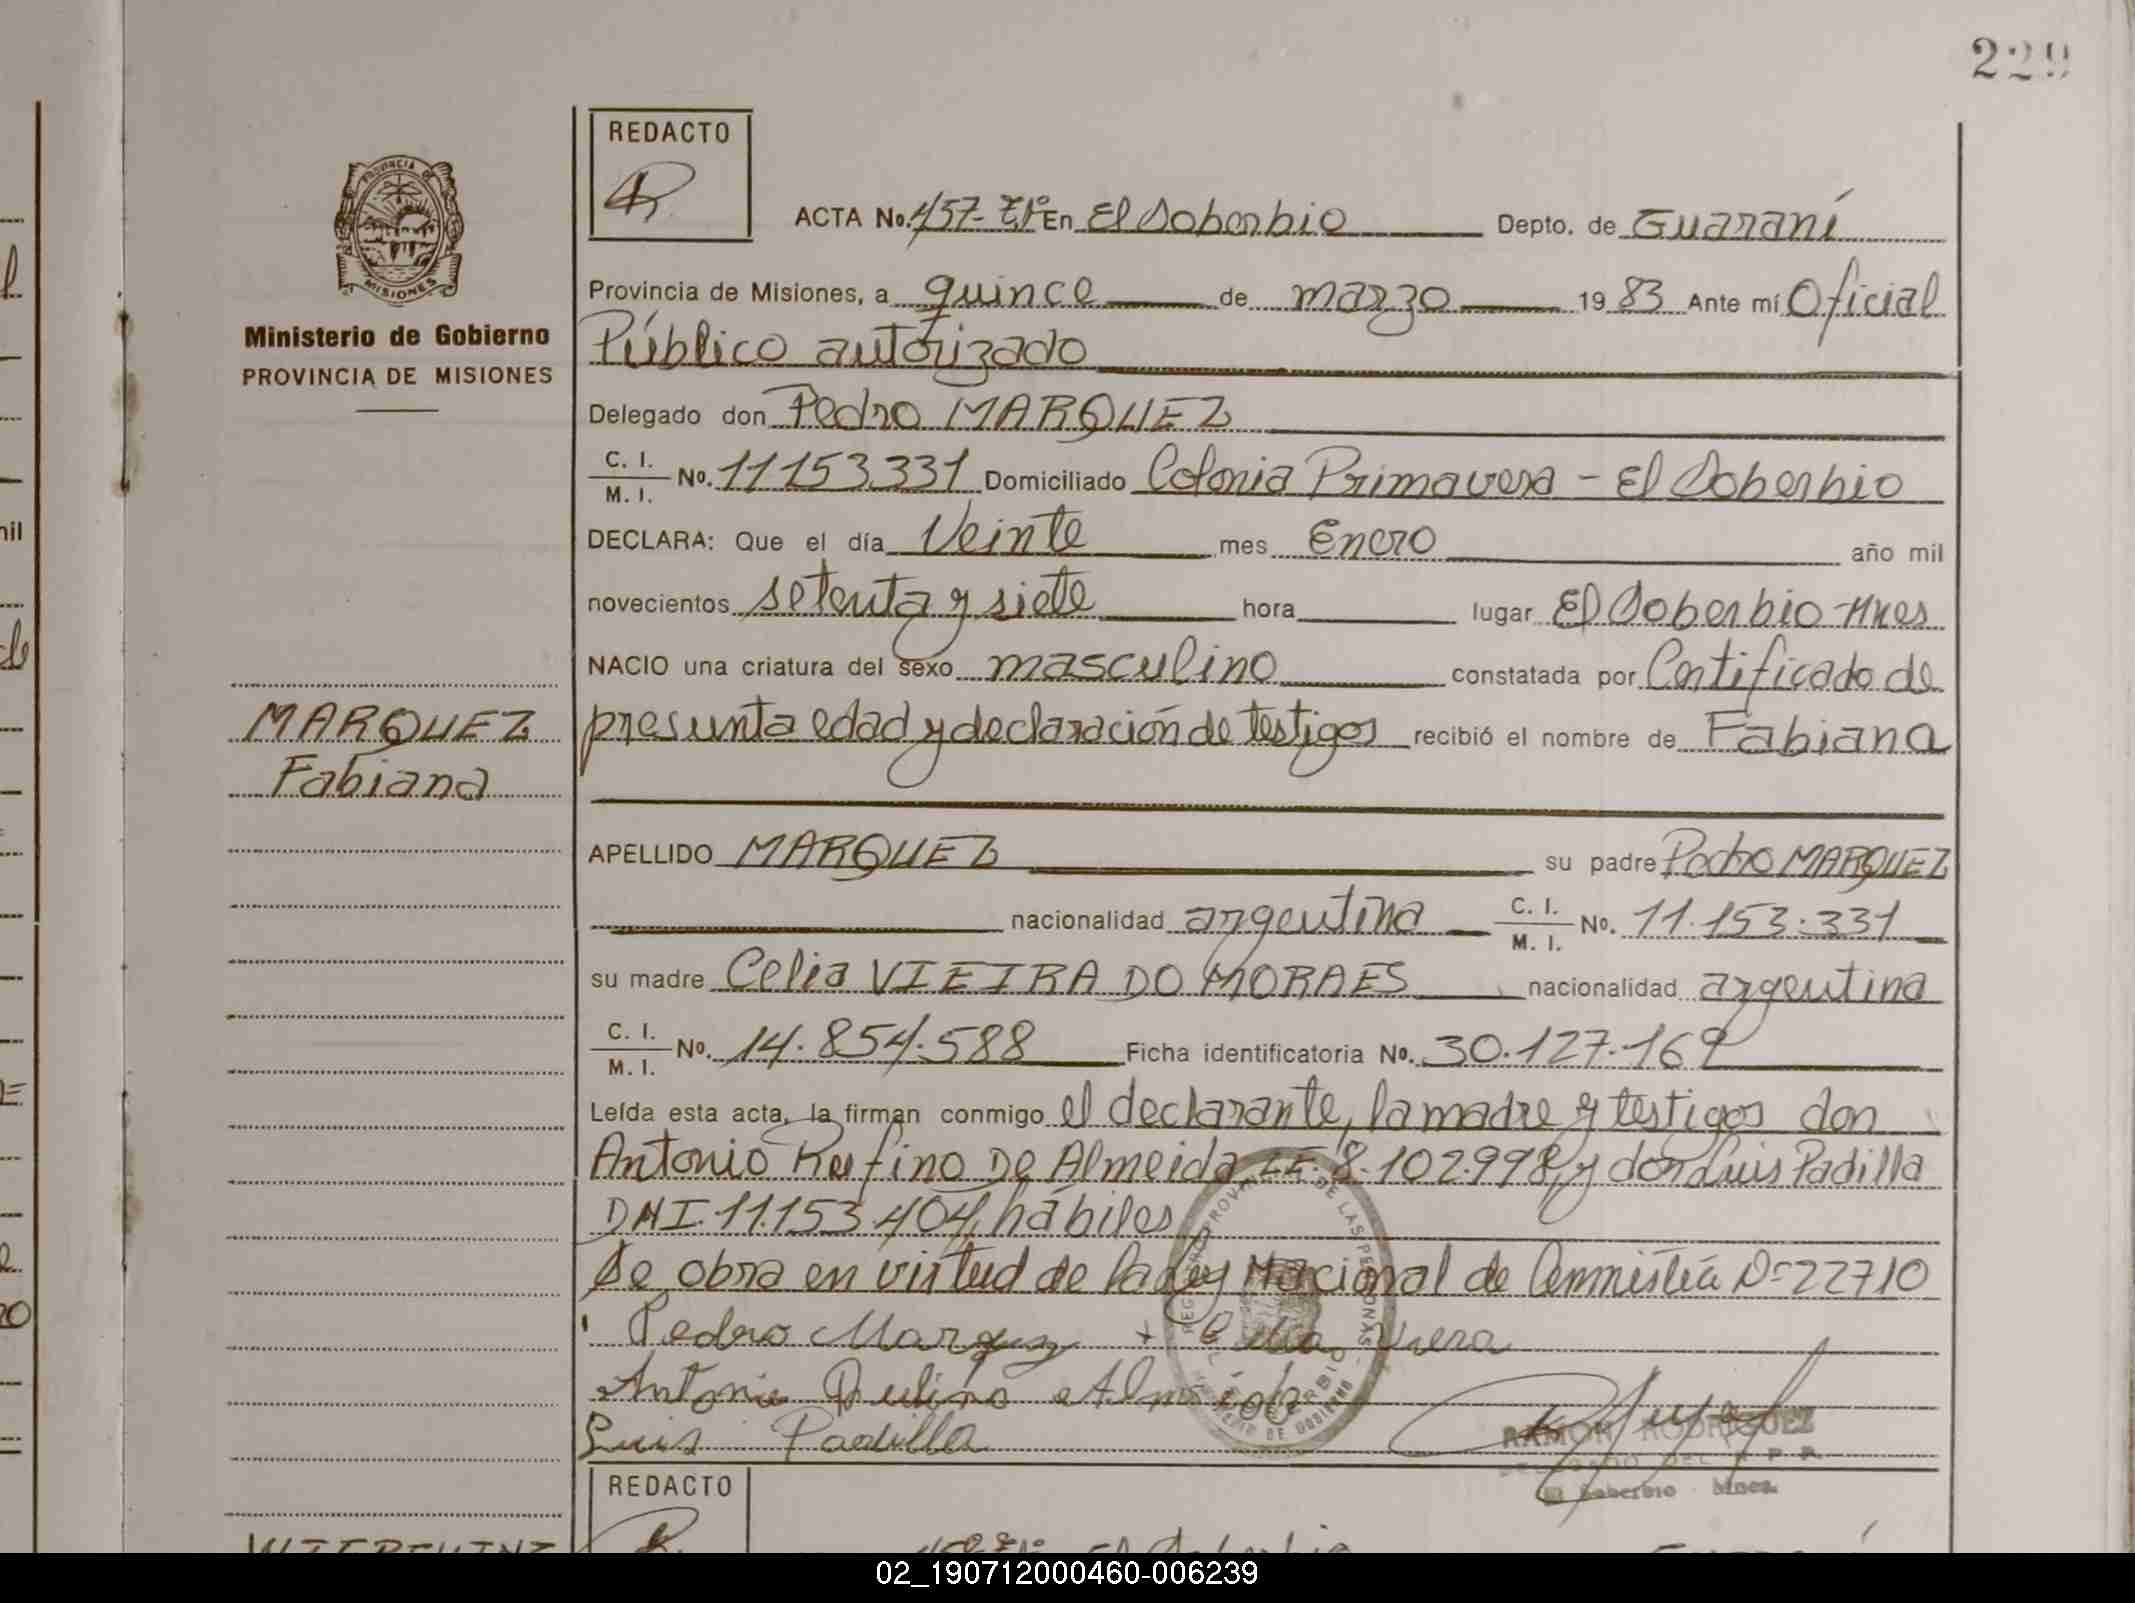 229
REDACTO
PROVINCIA DE
MISIONES
Ministerio de Gobierno
PROVINCIA DE MISIONES
ACTA No. 457- Tº1º En El Soberbio Depto. de Guaraní
Provincia de Misiones, a quince de marzo 19 83 Ante mí Oficial
Público autorizado
Delegado don Pedro MARQUEZ
C. I. / M. I. No. 11153.331 Domiciliado Colonia Primavera - El Soberbio
DECLARA: Que el día Veinte mes Enero año mil
novecientos setenta y siete hora lugar El Soberbio-Mnes
NACIO una criatura del sexo masculino constatada por Certificado de
presunta edad y declaración de testigos recibió el nombre de Fabiana
MARQUEZ
Fabiana
APELLIDO MARQUEZ su padre Pedro MARQUEZ
nacionalidad argentina C. I. / M. I. No. 11.153.331
su madre Celia VIEIRA DO MORAES nacionalidad argentina
C. I. / M. I. No. 14.854.588 Ficha identificatoria No. 30.127.169
Leída esta acta, la firman conmigo el declarante, la madre y testigos don
Antonio Rufino De Almeida LE. 8.102.998, y don Luis Padilla
DNI. 11.153.404, hábiles
Se obra en virtud de la Ley Nacional de Amnistía Nº 22710
Pedro Marquez + Celia Viera
Antonio Rufino Almeida
Luis Padilla
RAMON RODRIGUEZ
El Soberbio Mnes.
REDACTO
02_190712000460-006239